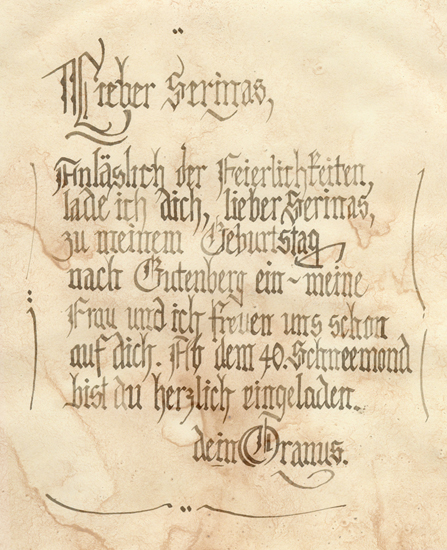 Lieber Serinas,
Anläslich der Feierlichkeiten,
lade ich dich, lieber Serinas,
zu meinem Geburtstag
nach Gutenberg ein ~ meine
Frau und ich freuen uns schon
auf dich. Ab dem 40. Schneemond
bist du herzlich eingeladen.
dein Oranus.